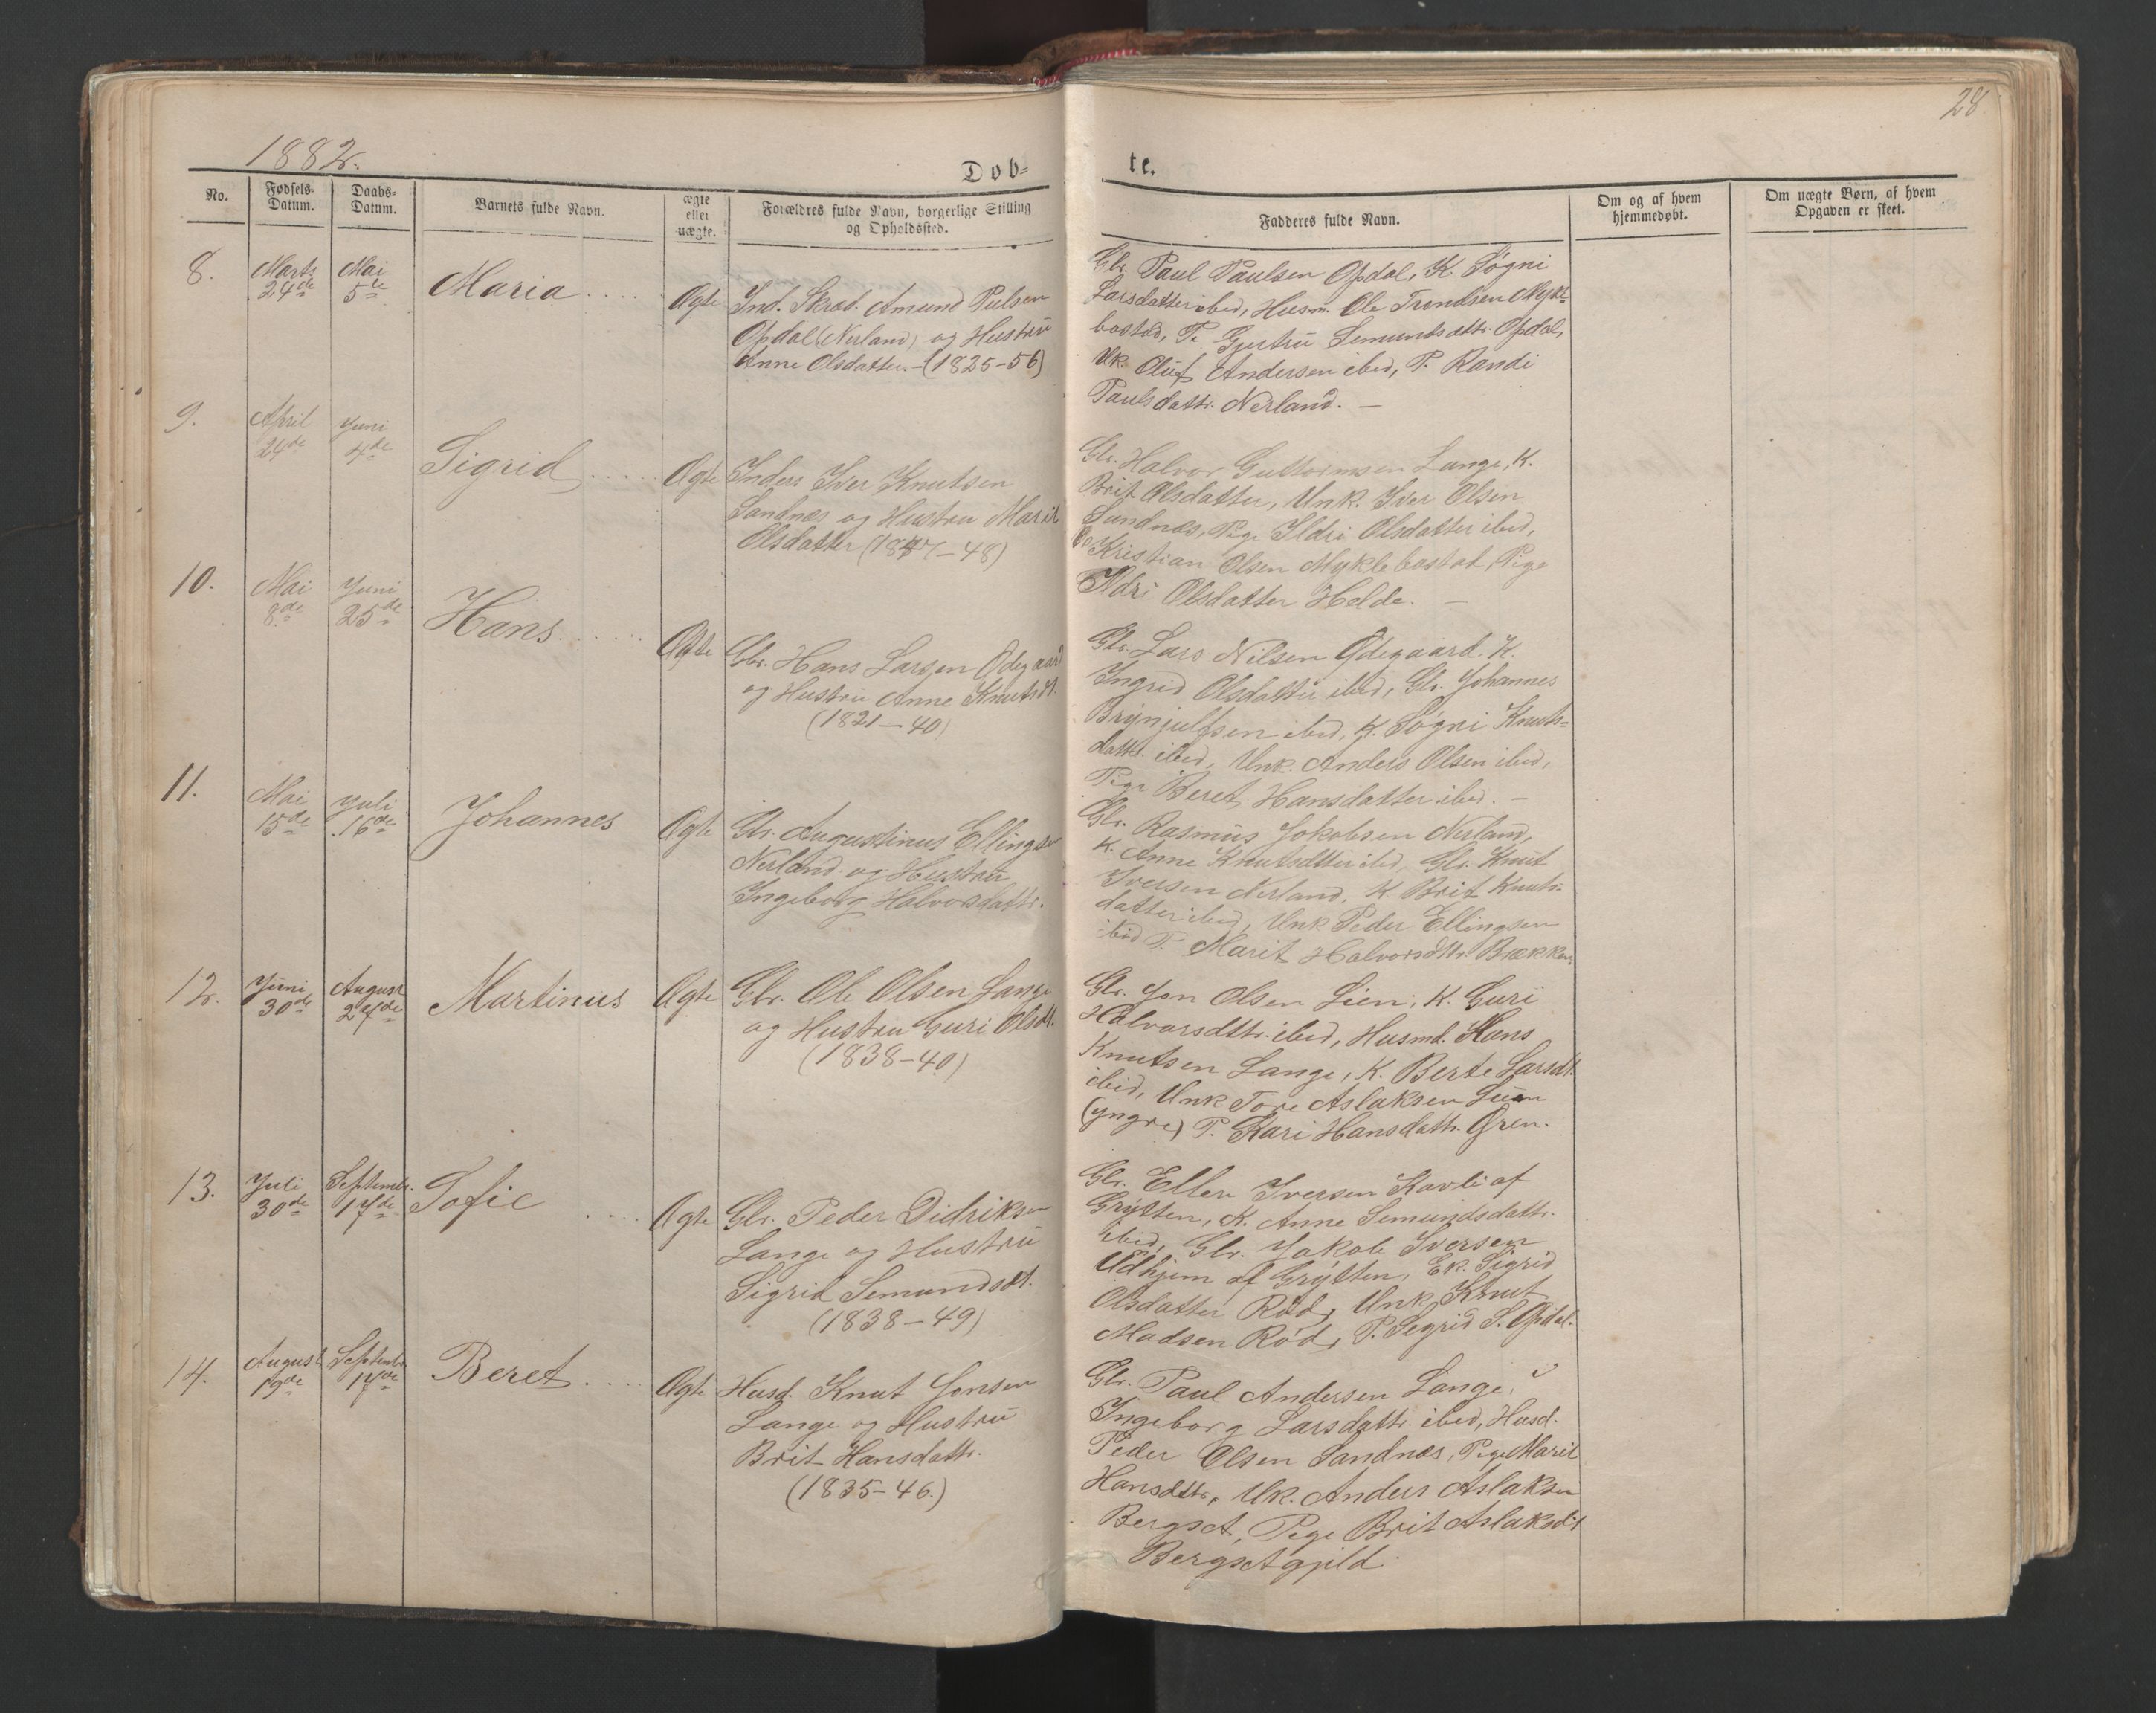 1882.
28
Dob-
te.
No.
Fødsels-
Datum.
Daabs-
Datum.
Barnets fulde Navn.
ægte
eller
uægte.
Forældres fulde Navn, borgerlige Stilling
og Opholdssted.
Fadderes fulde Navn.
Om og af hvem
hjemmedøbt.
Om uægte Børn, af hvem
Opgaven er skeet.
8.
Marts
24de
Mai
5te
Maria
Ægte
Ind. Skræd. Amund Pulsen
Opdal (Nerland) og Hustru
Anne Olsdatter. - (1825-56)
Gbr. Paul Paulsen Opdal, K. Søgni
Larsdatter ibid, Husm. Ole Trondsen Mykl-
bostad, P. Gjertru Semundsdttr. Opdal,
Uk. Oluf Andersen ibid, P. Randi
Paulsdattr. Nerland. -
9.
April
24de
Juni
4de
Sigrid
Ægte
Inders Iver Knutsen
Sandnæs og Hustru Marit
Olsdatter (1847-48)
Gbr. Halvor Guttormsen Lange, K.
Brit Olsdatter, Unk. Iver Olsen
Sandnæs, Pige Ildri Olsdatter ibid,
Kristian Olsen Myklebostad, Pige
Ildri Olsdatter Helde. -
10.
Mai
8de
Juni
25de
Hans
Ægte
Gbr. Hans Larsen Ødegaard
og Hustru Anne Knutsdt.
(1821-40)
Gbr. Lars Nilsen Ødegaard. K.
Ingrid Olsdatter ibid, Gbr. Johannes
Brynjulfsen ibid, K. Søgni Knuts-
dattr. ibid, Unk. Anders Olsen ibid,
Pige Beret Hansdatter ibid. -
11.
Mai
15de
Juli
16de
Johannes
Ægte
Gbr. Augustinus Ellingsen
Nerland og Hustru
Ingeborg Halvorsdattr.
Gbr. Rasmus Jokobsen Nerland,
K. Anne Knutsdtter ibid, Gbr. Knut
Iversen Nerland, K. Brit Knuts-
datter ibid, Unk Peder Ellingsen
ibid P. Marit Halvorsdttr. Brækken.
12.
Juni
30de
August
27de
Martinus
Ægte
Gbr. Ole Olsen Lange
og Hustru Guri Olsdt.
(1838-40)
Gbr. Jon Olsen Lien, K. Guri
Halvorsdttr. ibid, Husmd. Hans
Knutsen Lange, K. Berte Larsdt.
ibid, Unk Tore Aslaksen Lien
(yngre) P. Kari Hansdattr. Gren.
13.
Juli
30de
Septembr.
17de
Sofie
Ægte
Gbr. Peder Didriksen
Lange og Hustru
Sigrid Semundsdt.
(1838-49)
Gbr. Ellen Iversen Kavli af
Grytten, K. Anne Semundsdattr.
ibid, Gbr. Jakob Iversen
Udhjem af Grytten, Ek. Sigrid
Olsdatter Rød, Unk. Knut
Madsen Rød, P. Segrid S. Opdal.
14.
August
19de
Septembr
17de
Beret
Ægte
Husd. Knut Jonsen
Lange og Hustru
Brit Hansdattr.
(1835-46.)
Gbr. Paul Andersen Lange,
Ingeborg Larsdattr. ibid, Husd.
Peder Olsen Sandnæs, Pige Marit
Hansdttr, Uk. Anders Aslaksen
Bergset, Pige Brit Aslaksdt
Bergsetgjild